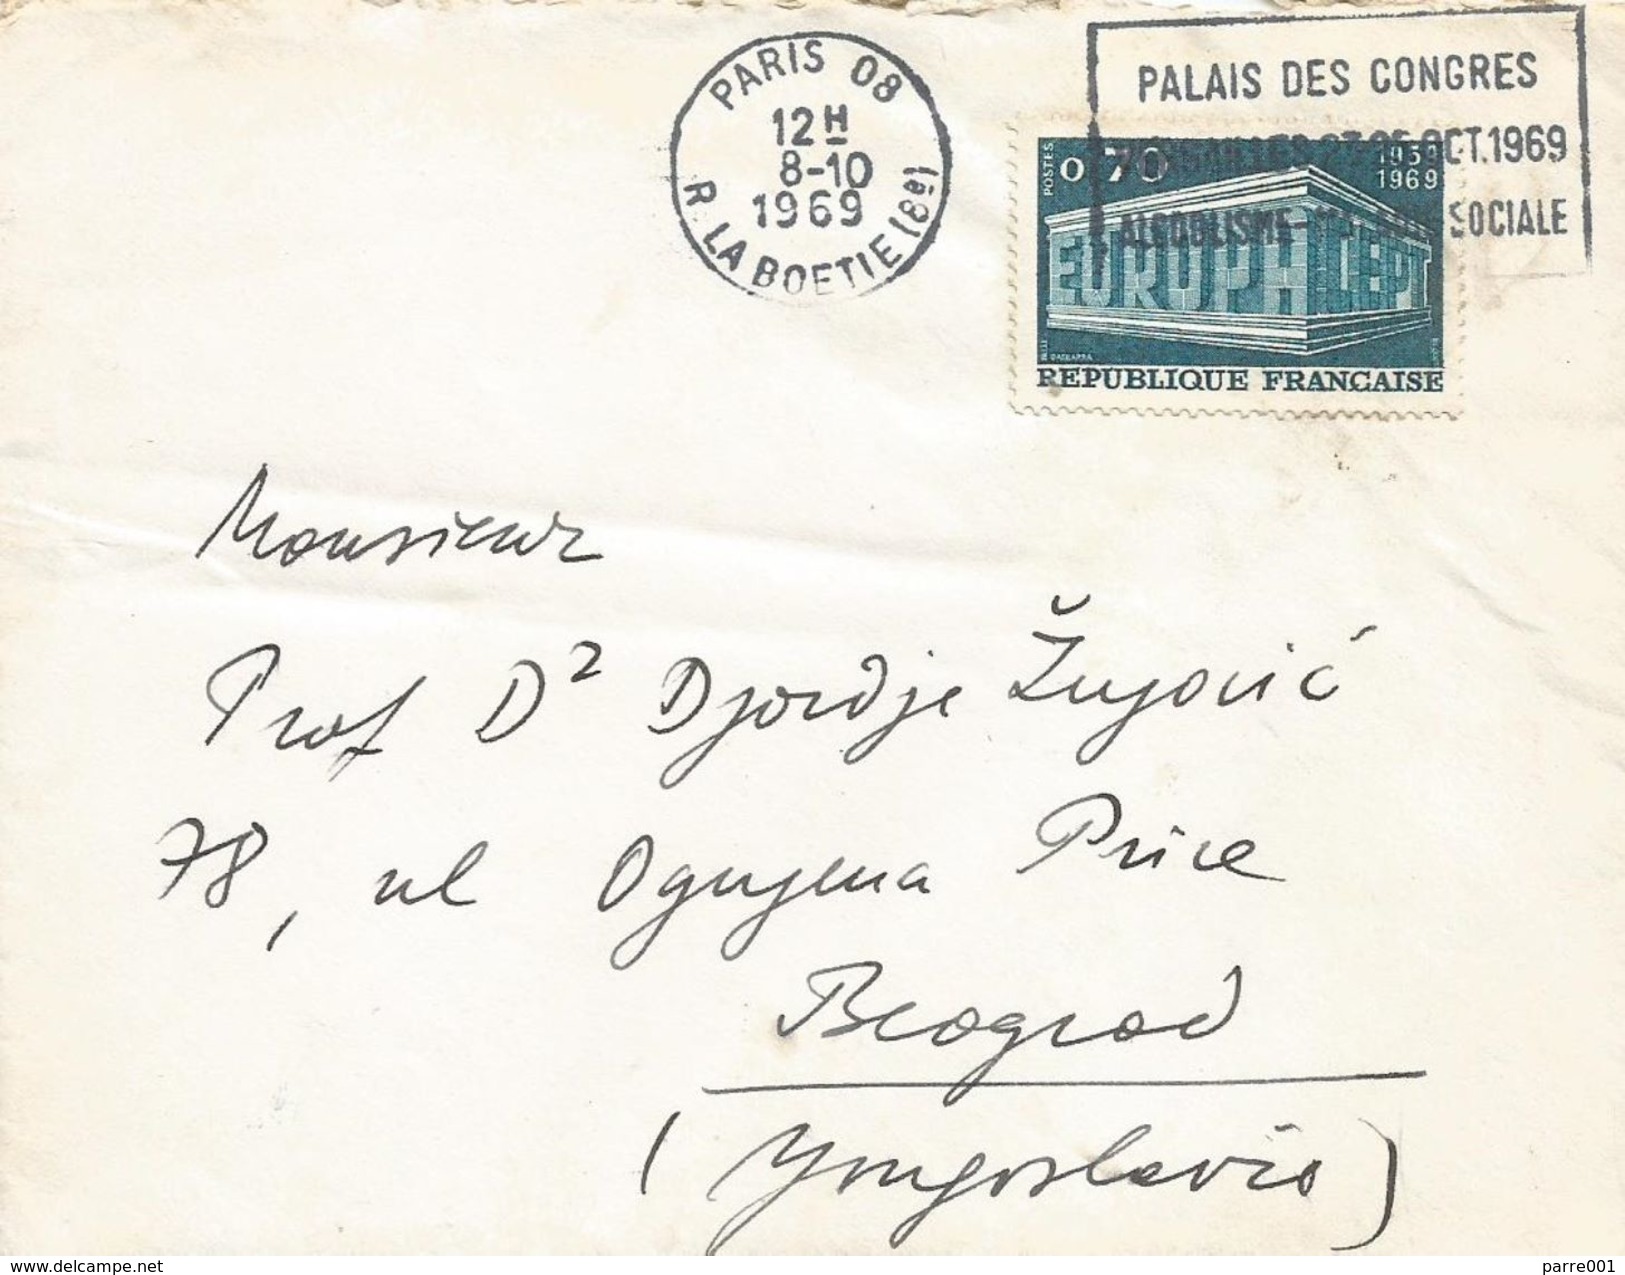 PARIS 08
12 H
8-10
1969
R. LA BOETIE (8e)
PALAIS DES CONGRES
OCT.1969
ALCOOLISME- SOCIALE
POSTES
0,70
1959
1969
EUROPA CEPT
REPUBLIQUE FRANCAISE
Monsieur
Prof Dr Djordje Žujović
78, ul Ognjena Price
Beograd
(Yougoslavie)
delcampe.net
parre001